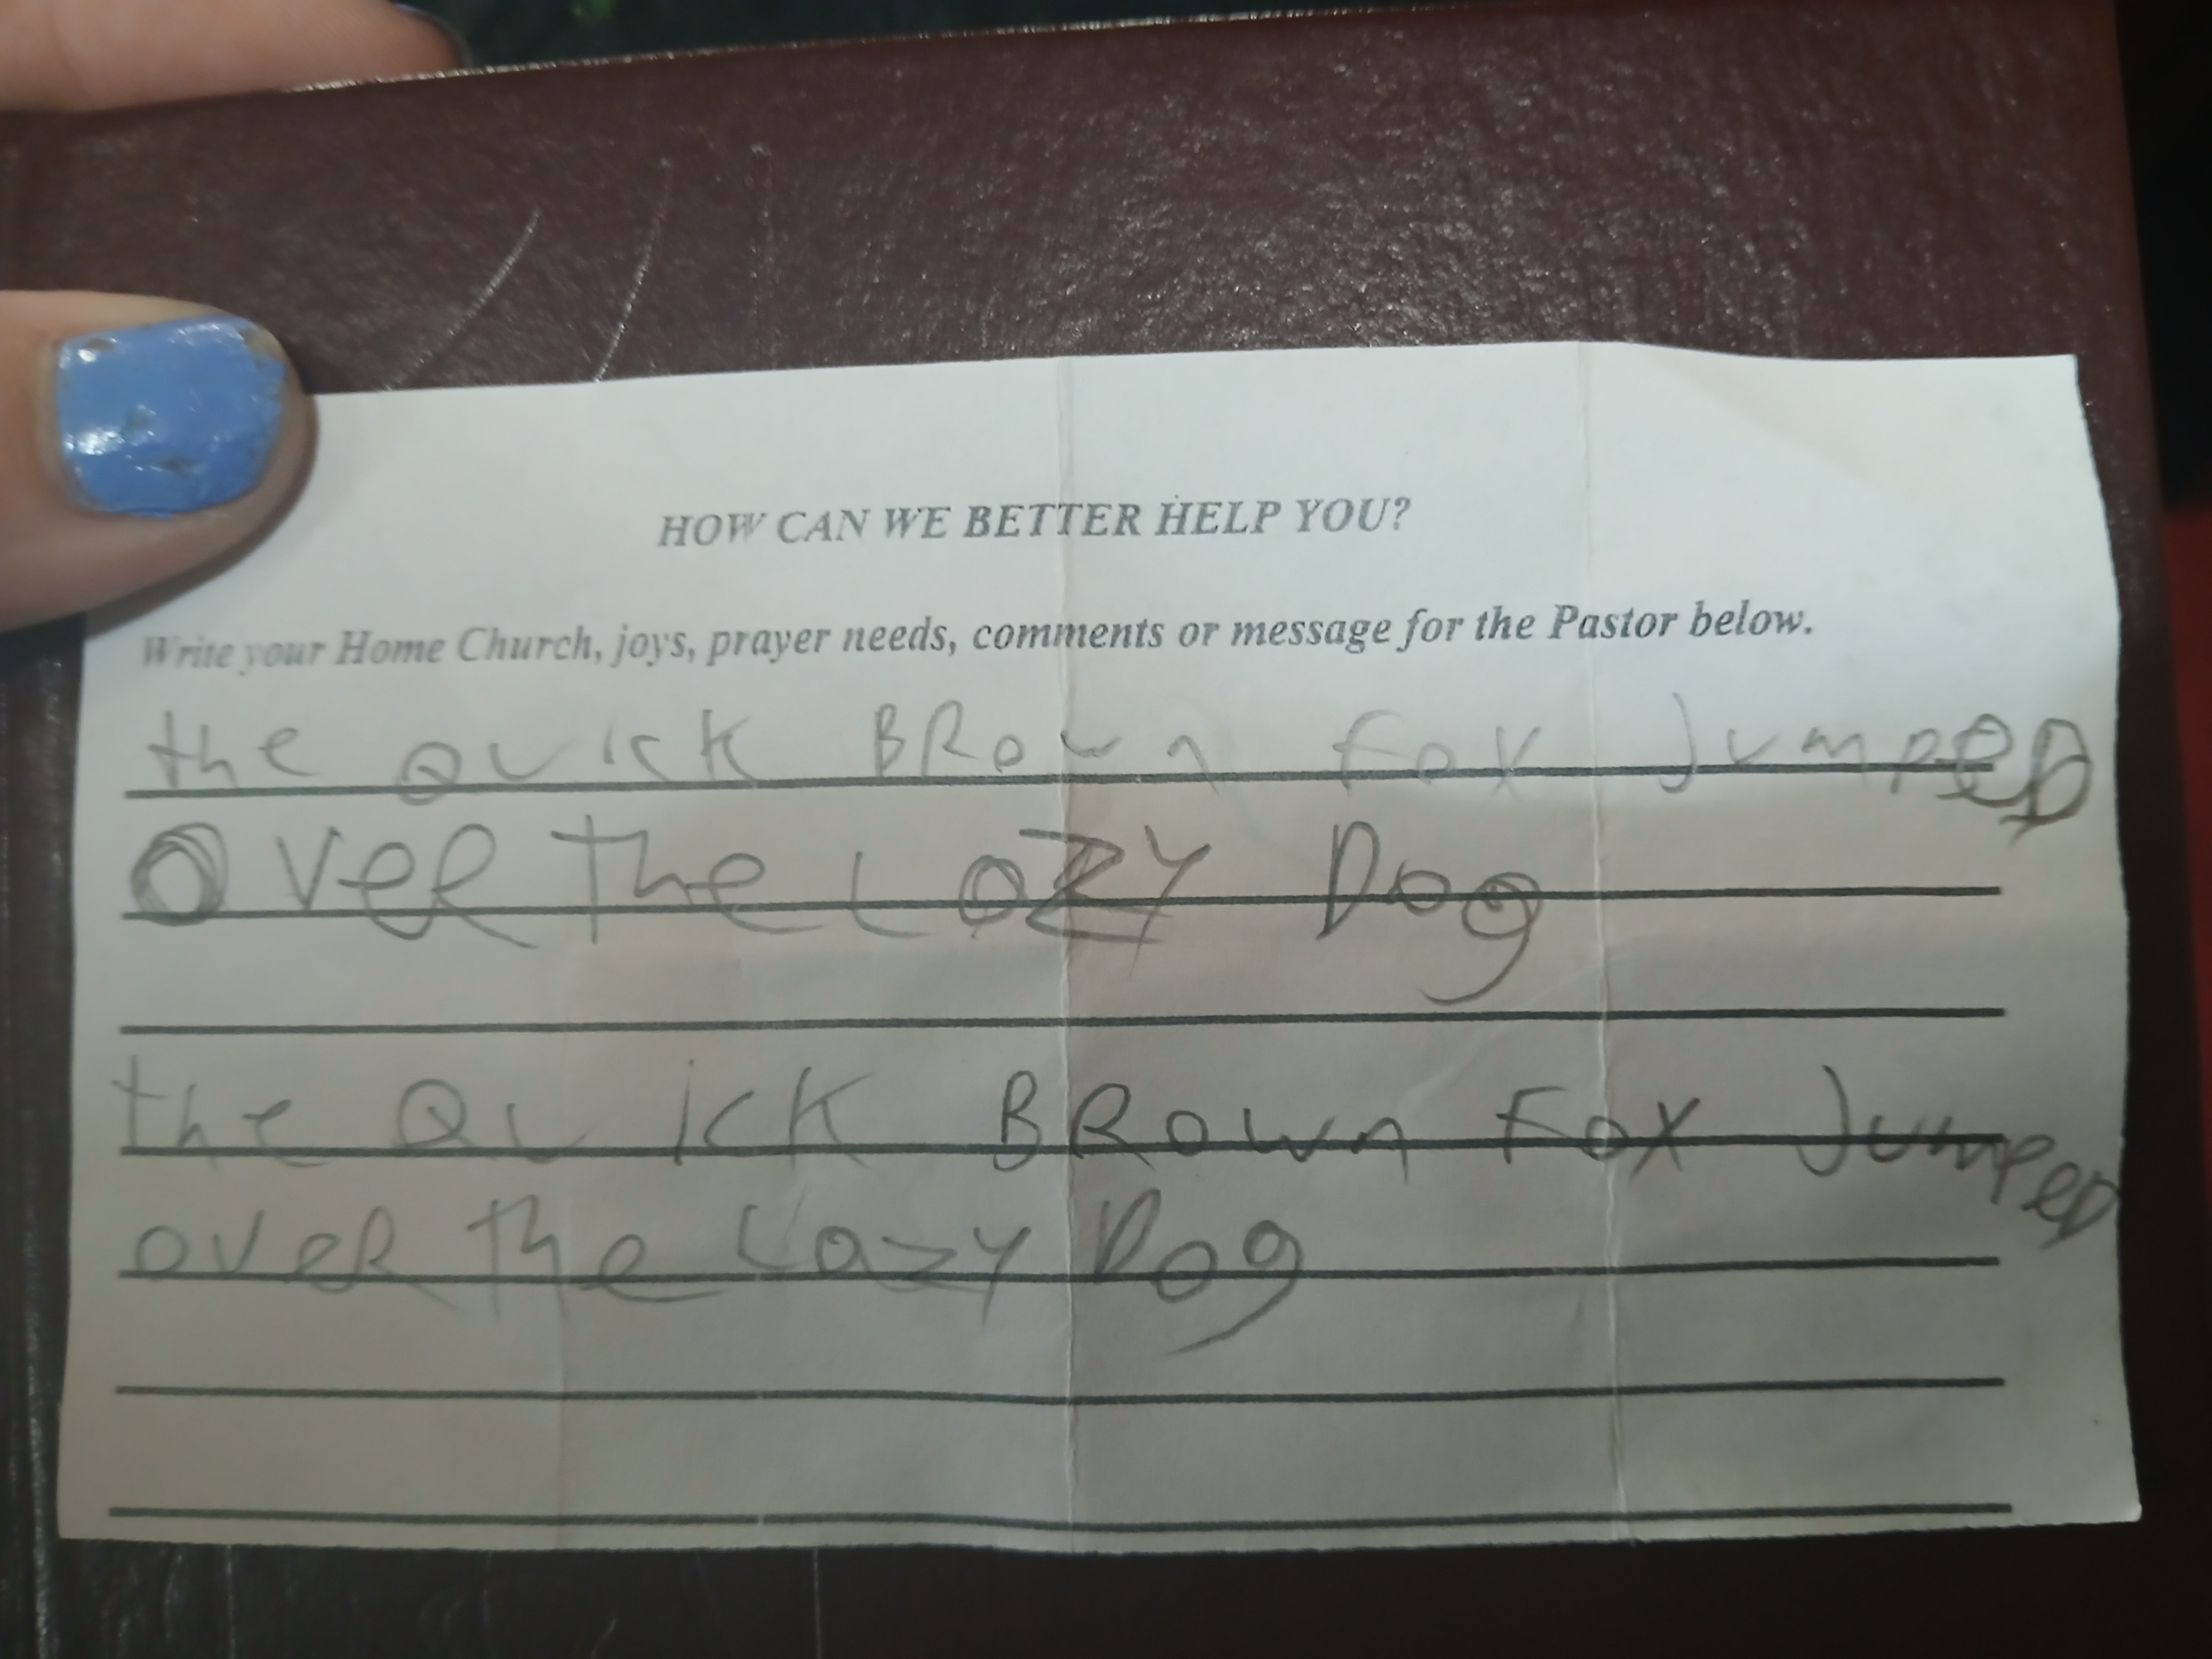 HOW CAN WE BETTER HELP YOU?
Write your Home Church, joys, prayer needs, comments or message for the Pastor below.
the QUICK BROwn Fox JumpeD
OveR the LaZY Dog
the QUicK BROwn Fox JumpeD
oveR The Lazy Dog